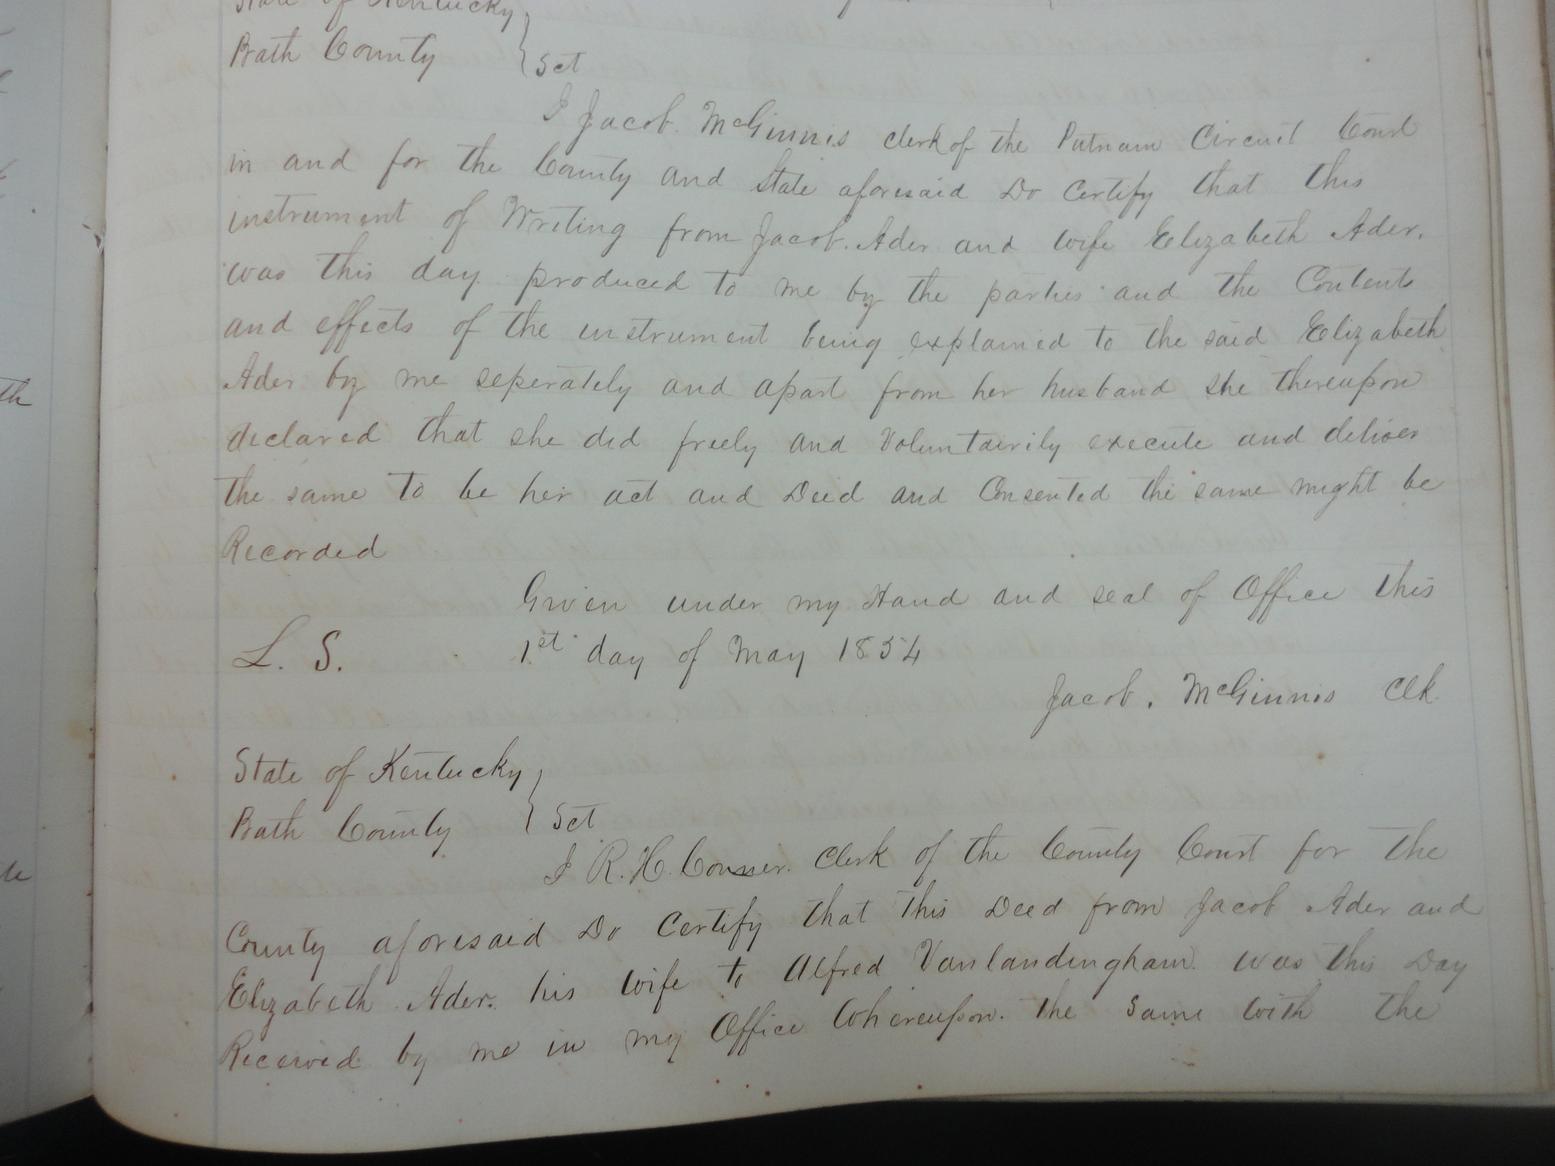 State of Kentucky
Bath County } Sct
I Jacob. McGinnis clerk of the Putnam Circuit Court
in and for the County and State aforesaid Do Certify that this
instrument of Writing from Jacob. Ader and wife Elizabeth Ader.
was this day produced to me by the parties and the Contents
and effects of the instrument being explained to the said Elizabeth
Ader by me seperately and apart from her husband she thereupon
declared that she did freely and Voluntairily execute and deliver
the same to be her act and Deed and Consented the same might be
Recorded
Given under my Hand and seal of Office this
L. S. 1st day of May 1854
Jacob. McGinnis Clk.
State of Kentucky
Bath County } Sct
I R. H. Conner. Clerk of the County Court for the
County aforesaid Do Certify that this Deed from Jacob Ader and
Elizabeth Ader. his wife to Alfred Vanlandingham. was this Day
Received by me in my Office Whereupon. the Same with the